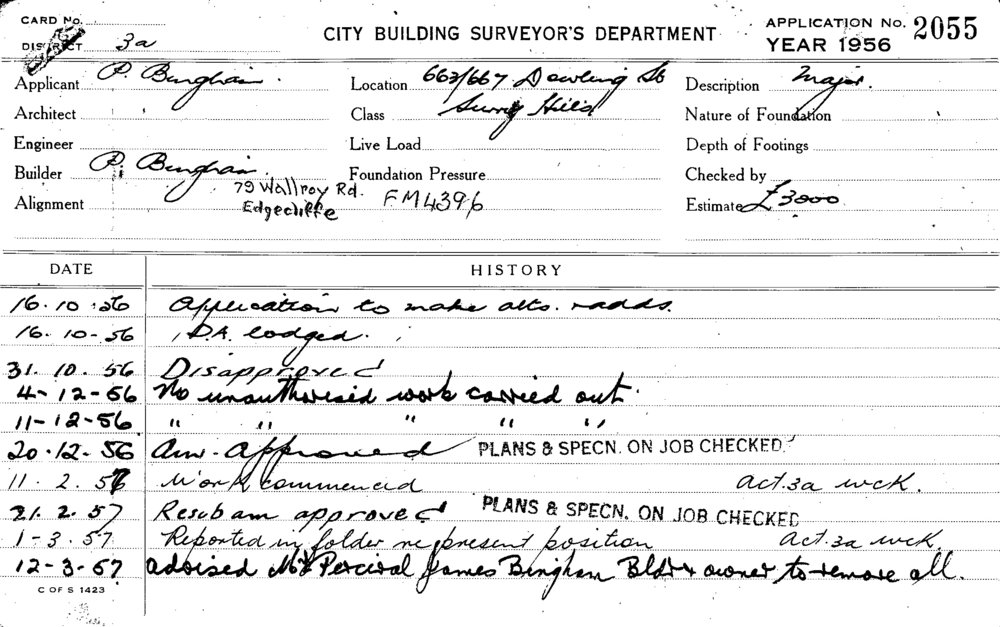 CARD No.
CITY BUILDING SURVEYOR'S DEPARTMENT
APPLICATION No. 2055
DISTRICT 3a
YEAR 1956
Applicant P. Bingham.
Location 663/667 Dowling St
Description Major.
Architect
Class Surry Hills
Nature of Foundation
Engineer
Live Load
Depth of Footings
Builder P. Bingham.
Foundation Pressure
Checked by
79 Wallroy Rd.
Alignment Edgecliffe FM4396
Estimate £3000
DATE HISTORY
16.10.56 Application to make alts. & adds.
16.10-56 D.A. lodged.
31.10.56 Disapproved
4-12-56 No unauthorised work carried out.
11-12-56 " " " " "
20.12.56 Am. Approved PLANS & SPECN. ON JOB CHECKED.
11.2.57 Work commenced act.3a wck.
21.2.57 Resub am approved PLANS & SPECN. ON JOB CHECKED
1-3.57 Reported in folder re present position act.3a wck.
12-3-57 advised Mr Percival James Bingham Bldr & owner to remove all.
C OF S 1423